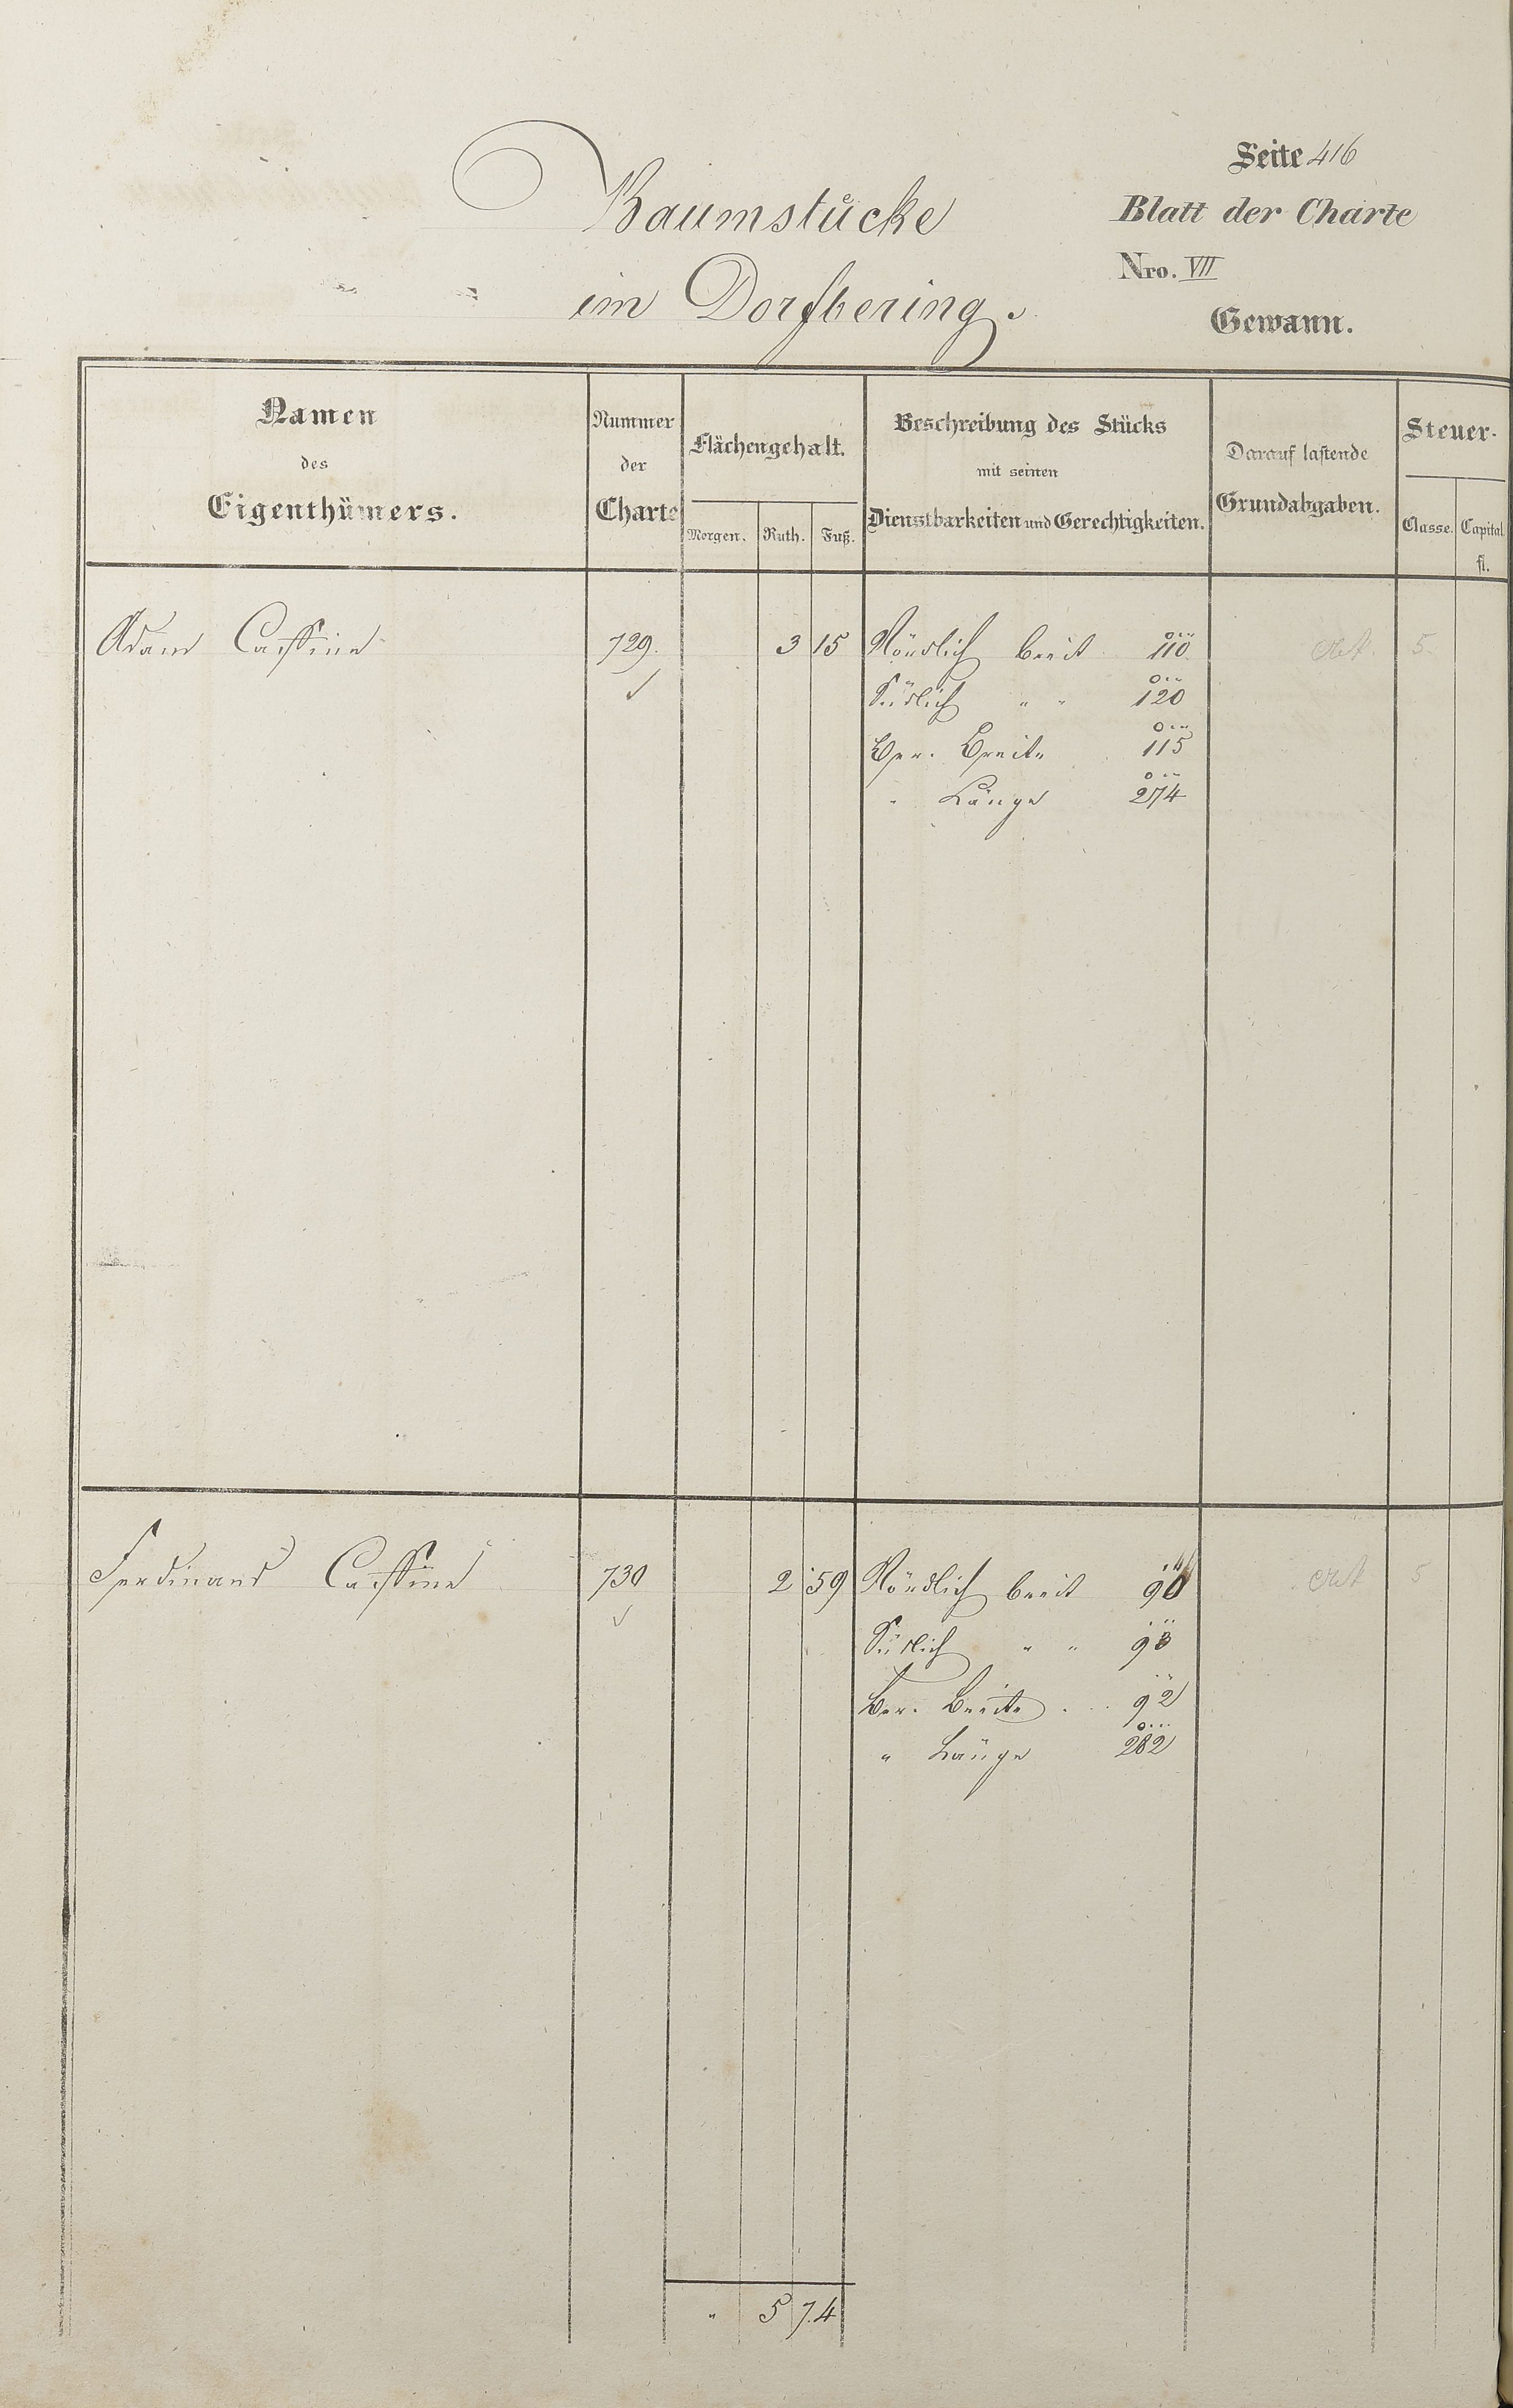 Seite 416
Baumstücke
Blatt der Charte
Nro. VII
im Dorfbering.
Gewann.
Namen
des
Eigenthümers.
Nummer
der
Charte
Flächengehalt.
Morgen. Ruth. Fuß.
Beschreibung des Stücks
mit seinen
Dienstbarkeiten und Gerechtigkeiten.
Darauf lastende
Grundabgaben.
Steuer-
Classe. Capital
fl.
Adam Cassine 729. 3 15 Nördlich breit 110 5
Südlich " " 120
Ber. Breite 115
" Länge 274
Ferdinand Cassine 730 2 59 Nördlich breit 90 5
Südlich " " 93
Ber. Breite 92
" Länge 282
" 5 74